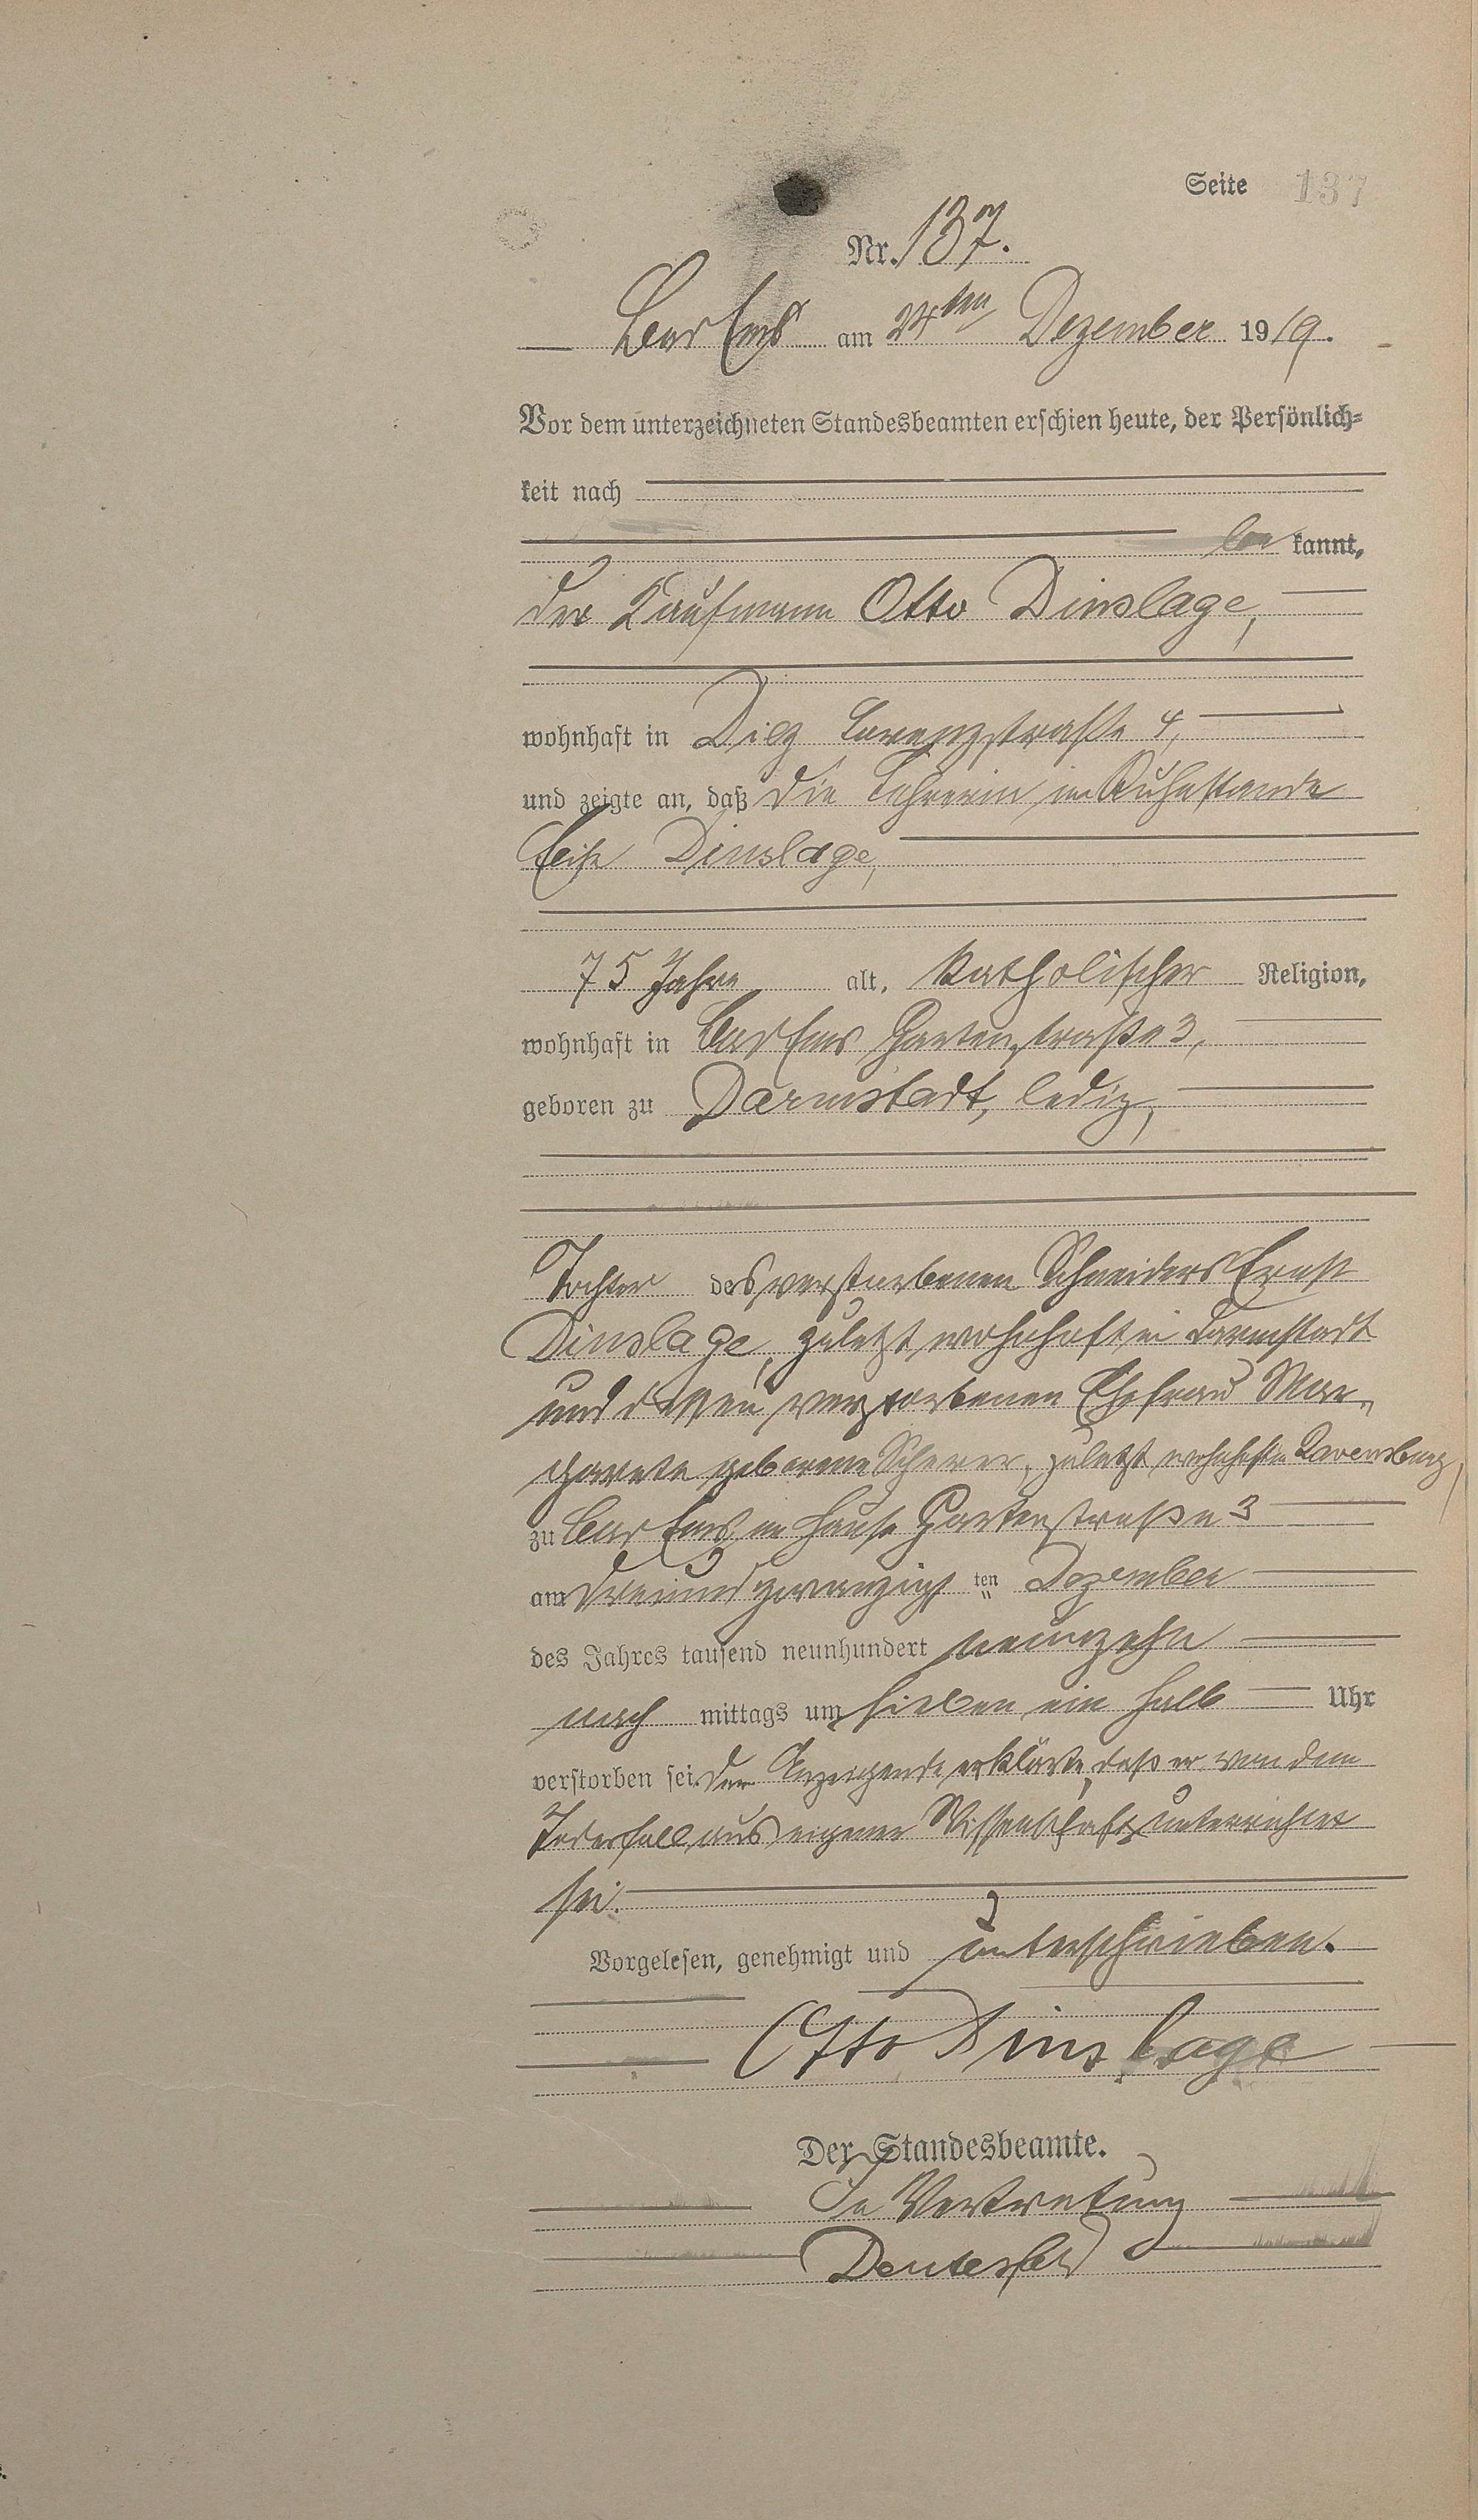 Seite 137
Nr. 137.
Bad Ems am 24ten Dezember 1919.
Vor dem unterzeichneten Standesbeamten erschien heute, der Persönlich-
keit nach
be kannt,
der Kaufmann Otto Dinslage,
wohnhaft in Diez Lorenzstraße 4,
und zeigte an, daß die Lehrerin im Ruhestande
Dinslage,
75 Jahre alt, katholischer Religion,
wohnhaft in Bad Ems Gartenstraße 3,
geboren zu Darmstadt, ledig,
Tochter des verstorbenen Schneiders Ernst
Dinslage, zuletzt wohnhaft in Darmstadt
und dessen verstorbenen Ehefrau Mar-
garete geborene Scherer, zuletzt wohnhaft in Ravensburg,
zu Bad Ems im Hause Gartenstraße 3
am dreiundzwanzigsten Dezember
des Jahres tausend neunhundert neunzehn
nach mittags um sieben ein halb Uhr
verstorben sei. Der Anzeigende erklärte, daß er von dem
Todesfall aus eigener Wissenschaft unterrichtet
sei.
Vorgelesen, genehmigt und unterschrieben.
Otto Dinslage
Der Standesbeamte.
In Vertretung